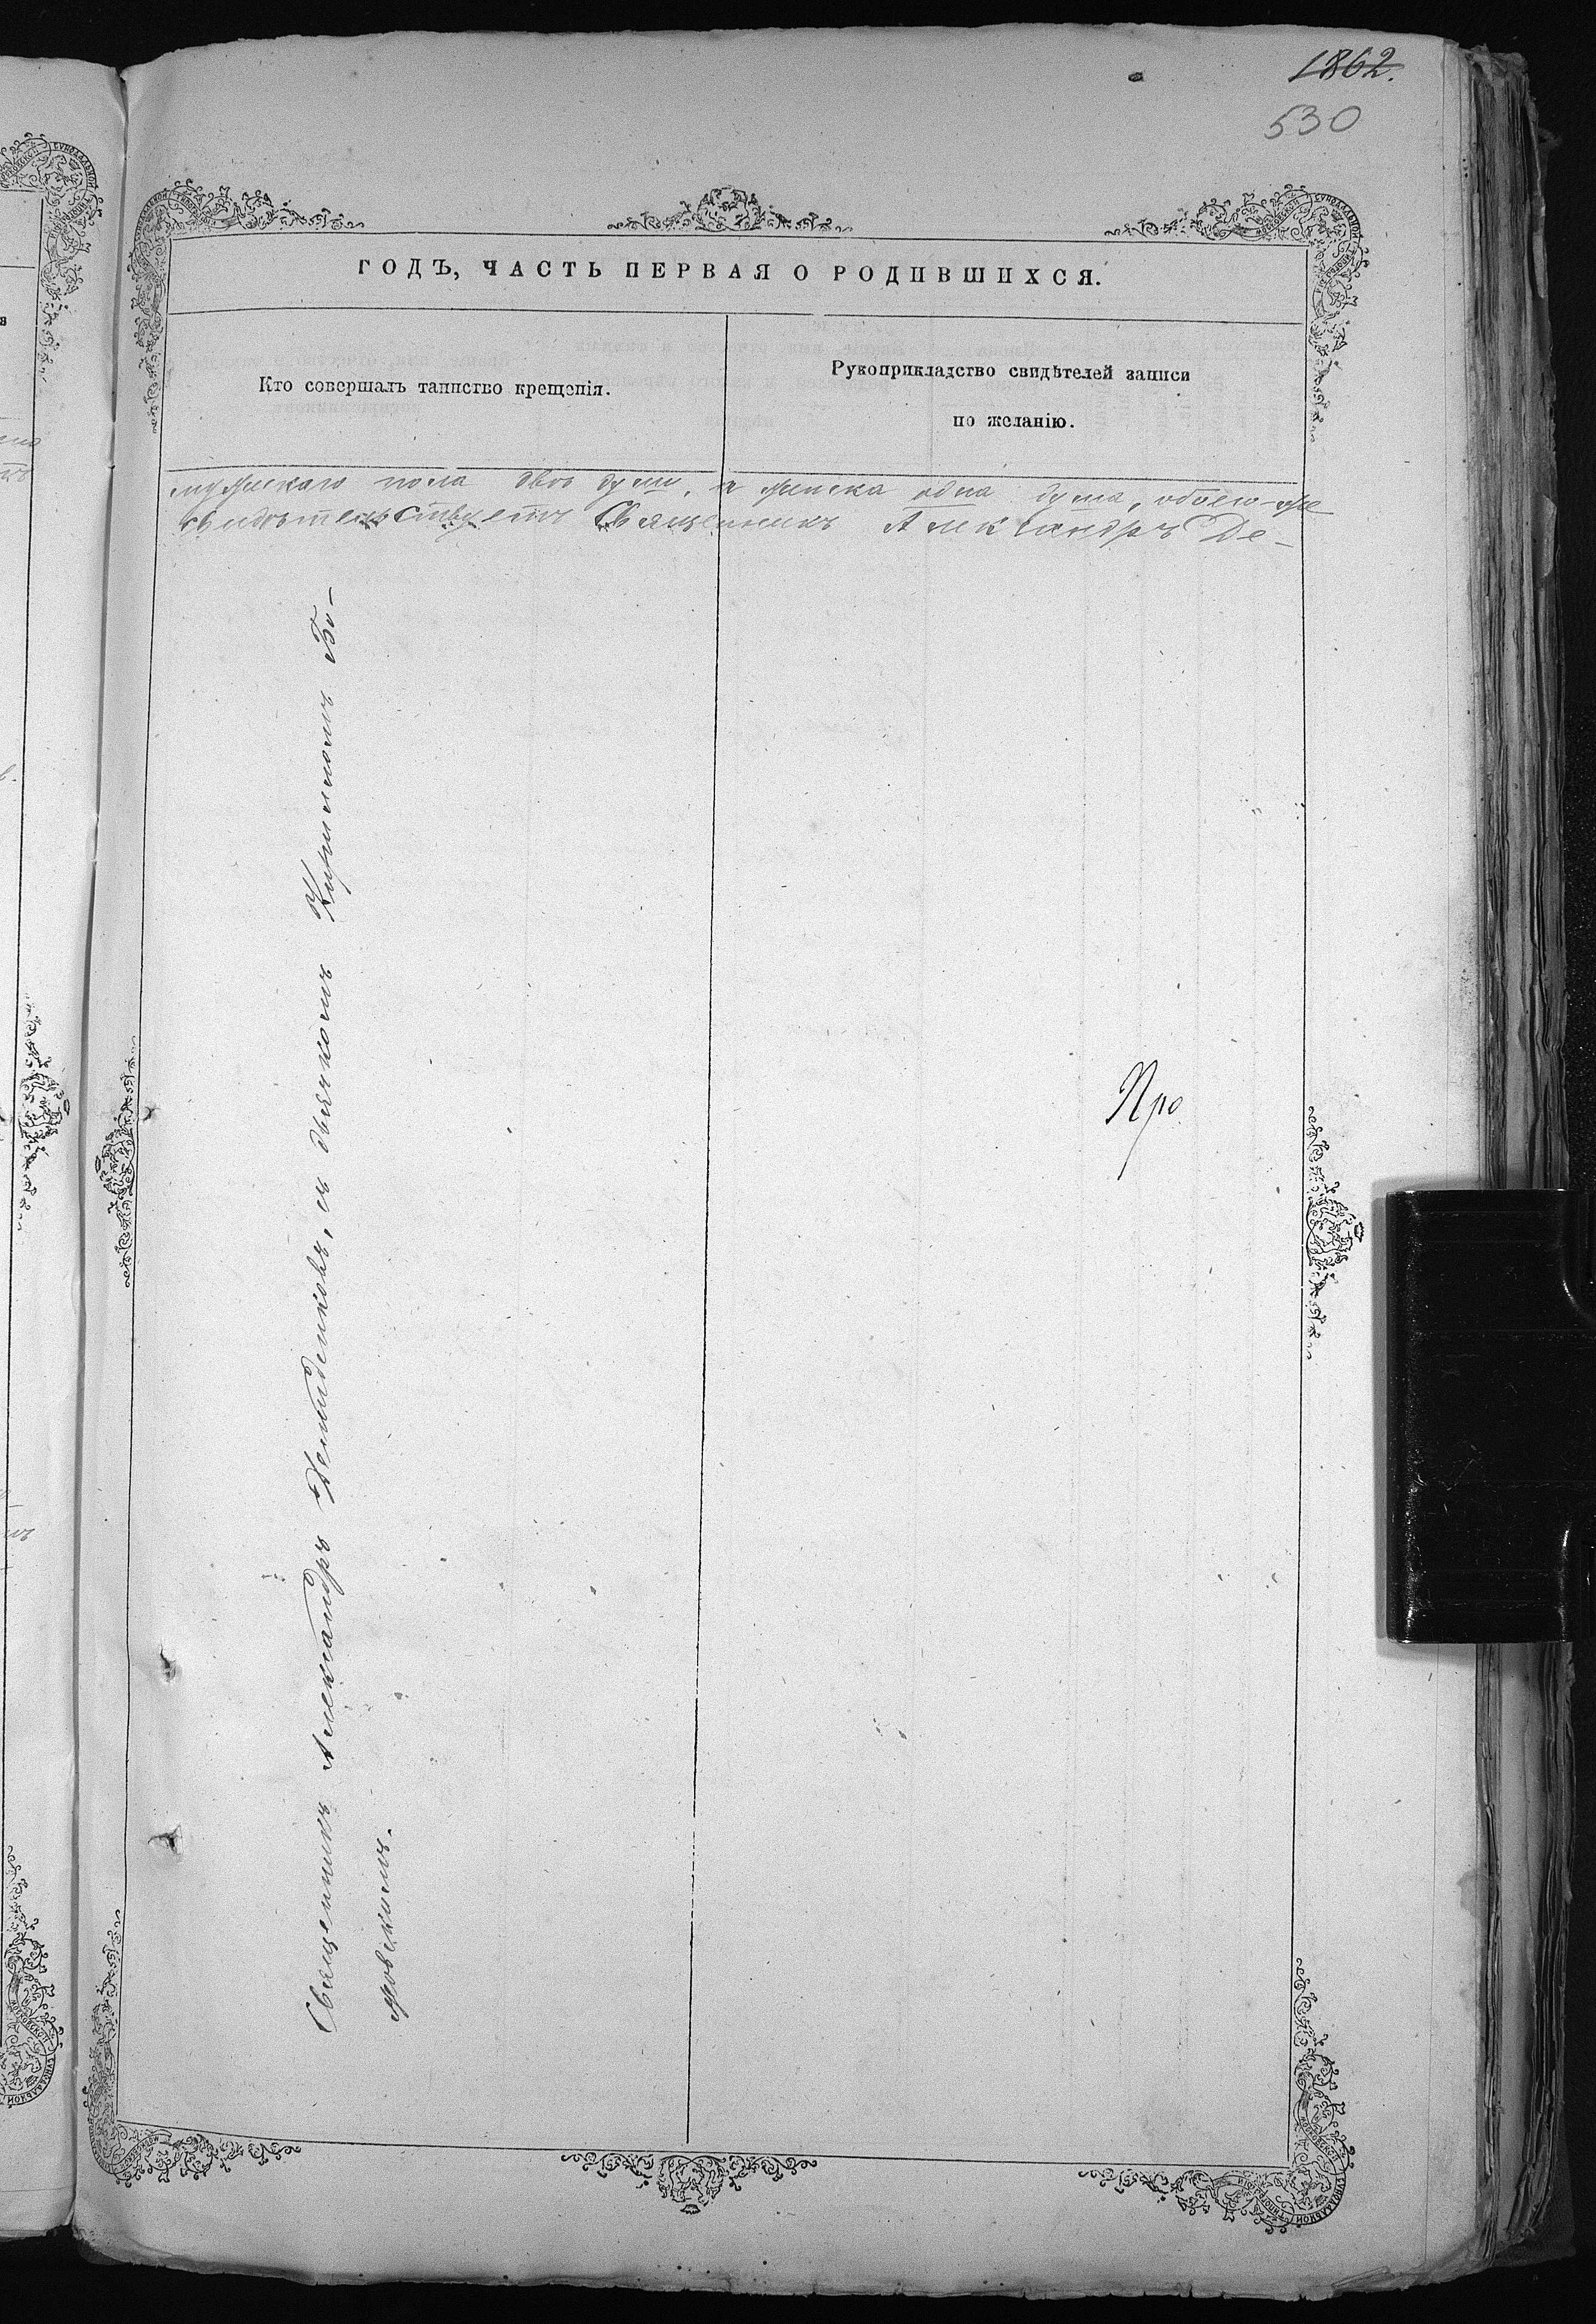 1862.
530
ГОДЪ, ЧАСТЬ ПЕРВАЯ О РОДИВШИХСЯ.
Кто совершалъ таинство крещенія.
Рукоприкладство свидѣтелей записи
по желанію.
мужскаго пола двѣ души, а женска одна душа, обоего же
свидѣтельствуетъ Священникъ Александръ Де-
Священникъ Александръ Демиденковъ, съ дьячкомъ Кирилломъ Бо-
ровскимъ.
Про